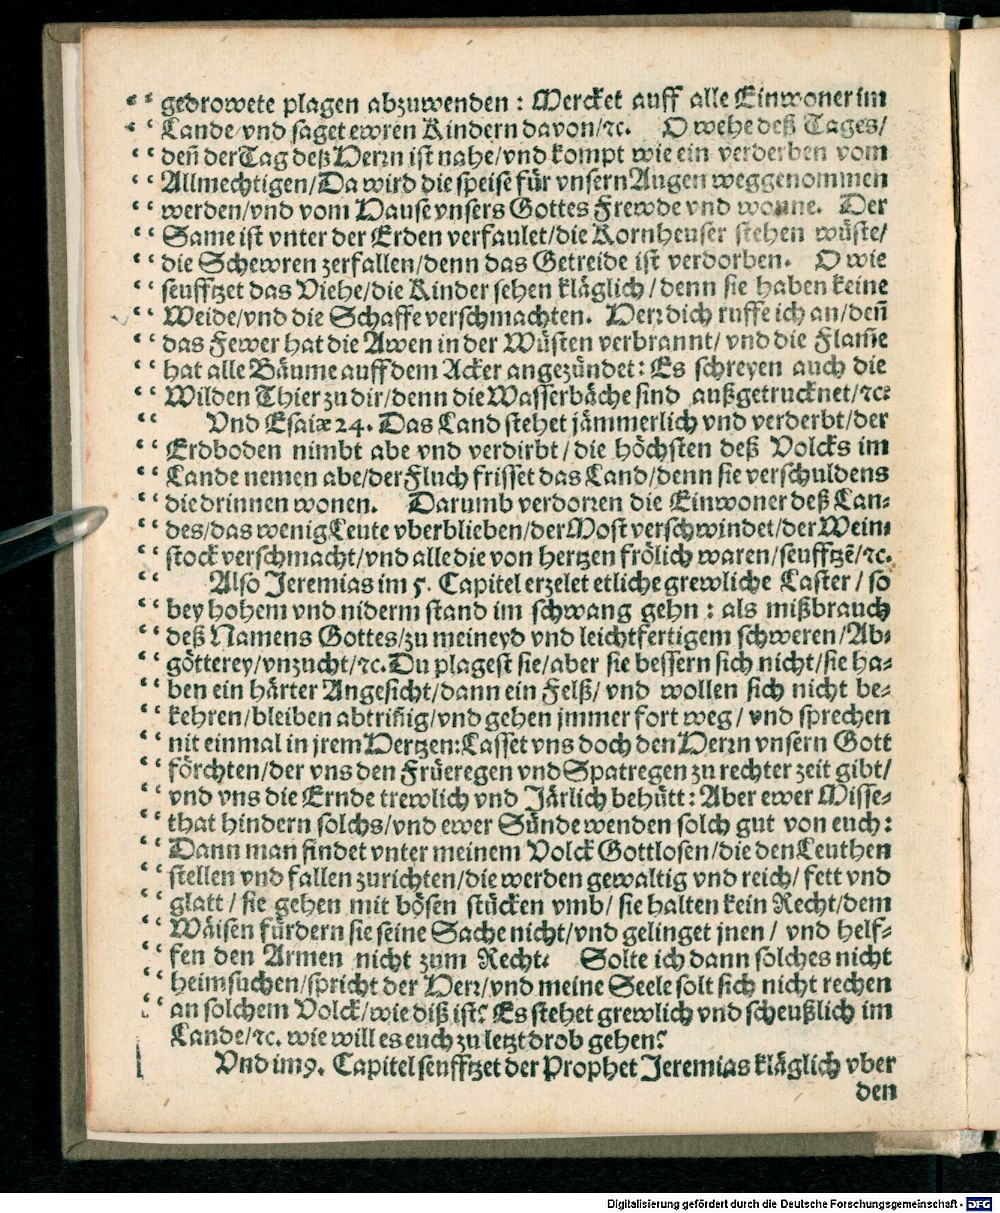 “ gedrowete plagen abzuwenden : Mercket auff alle Einwoner im
“ Lande/ vnd saget ewren Kindern davon/ꝛc. O wehe deß Tages/
“ deñ der Tag deß Herrn ist nahe/vnd kompt wie ein verderben vom
“ Allmechtigen/Da wird die speise für vnsern Augen weggenommen
“ werden/vnd vom Hause vnsers Gottes Frewde vnd wonne. Der
“ Same ist vnter der Erden verfaulet/die Kornheuser stehen wüste/
“ die Schewren zerfallen/denn das Getreide ist verdorben. O wie
“ seufftzet das Viehe/die Rinder sehen kläglich/denn sie haben keine
“ Weide/vnd die Schaffe verschmachten. Herr dich ruffe ich an/deñ
“ das Fewer hat die Awen in der Wüsten verbrannt/ vnd die Flam̃e
“ hat alle Bäume auff dem Acker angezündet: Es schreyen auch die
“ Wilden Thier zu dir/denn die Wasserbäche sind außgetrucknet/ꝛc:
“ Vnd Esaiæ 24. Das Land stehet jämmerlich vnd verderbt/der
“ Erdboden nimbt abe vnd verdirbt/ die höchsten deß Volcks im
“ Lande nemen abe/der Fluch frisset das Land/denn sie verschuldens
“ die drinnen wonen. Darumb verdorren die Einwoner deß Lan-
“ des/das wenig Leute vberblieben/der Most verschwindet/der Wein-
“ stock verschmacht/vnd alle die von hertzen frölich waren/seufftzẽ/ꝛc.
“ Also Jeremias im 5. Capitel erzelet etliche grewliche Laster/ so
“ bey hohem vnd niderm stand im schwang gehn : als mißbrauch
“ deß Namens Gottes/zu meineyd vnd leichtfertigem schweren/Ab-
“ götterey/vnzucht/ꝛc. Du plagest sie/aber sie bessern sich nicht/sie ha-
“ ben ein härter Angesicht/dann ein Felß/ vnd wollen sich nicht be-
“ kehren/bleiben abtriñig/vnd gehen jmmer fort weg/ vnd sprechen
“ nit einmal in jrem Hertzen: Lasset vns doch den Herrn vnsern Gott
“ förchten/der vns den Früeregen vnd Spatregen zu rechter zeit gibt/
“ vnd vns die Ernde trewlich vnd Järlich behütt: Aber ewer Misse-
“ that hindern solchs/vnd ewer Sünde wenden solch gut von euch:
“ Dann man findet vnter meinem Volck Gottlosen/die den Leuthen
“ stellen vnd fallen zurichten/die werden gewaltig vnd reich/ fett vnd
“ glatt/ sie gehen mit bösen stücken vmb/ sie halten kein Recht/dem
“ Wäisen fürdern sie seine Sache nicht/vnd gelinget jnen/ vnd helf-
“ fen den Armen nicht zum Recht. Solte ich dann solches nicht
“ heimsuchen/spricht der Herr/vnd meine Seele solt sich nicht rechen
“ an solchem Volck/wie diß ist? Es stehet grewlich vnd scheußlich im
Lande/ꝛc. wie will es euch zu letzt drob gehen?
Vnd im 9. Capitel seufftzet der Prophet Jeremias kläglich vber
den
Digitalisierung gefördert durch die Deutsche Forschungsgemeinschaft - DFG